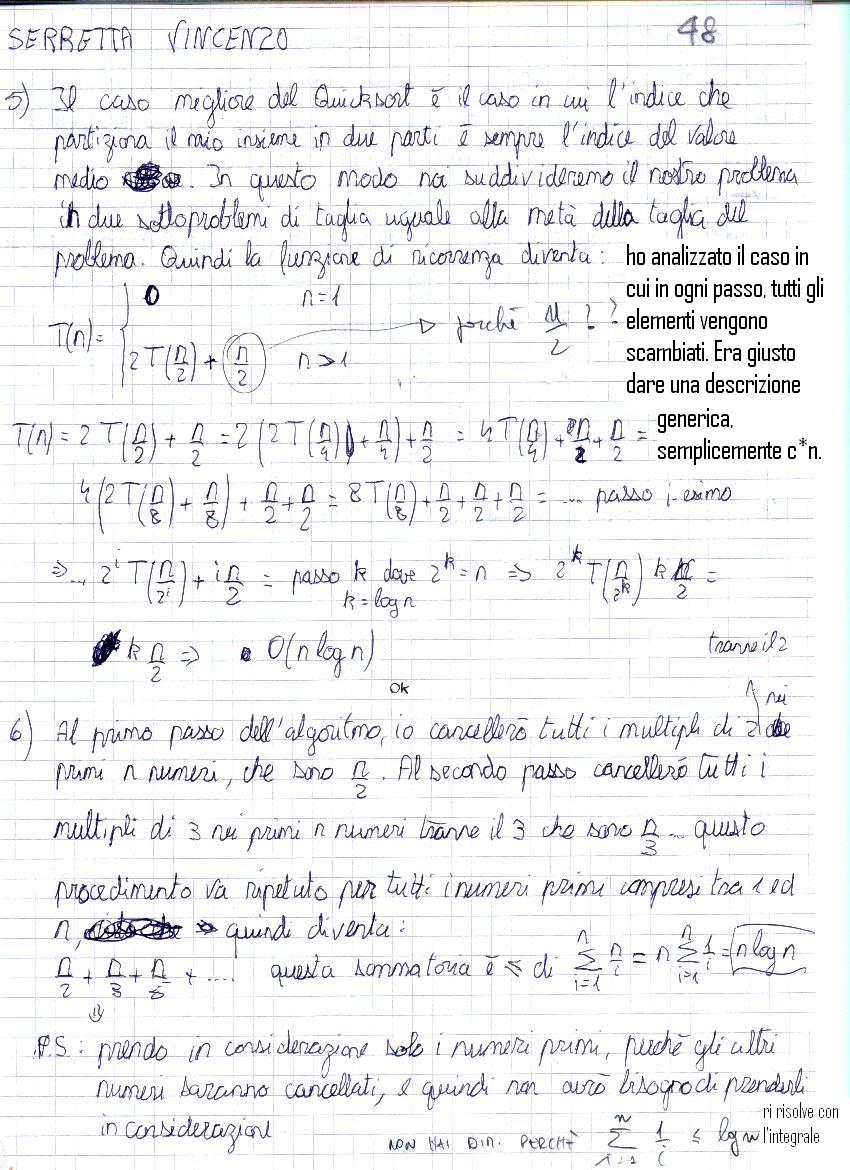 SERRETTA VINCENZO
48
5) Il caso megliore del Quicksort è il caso in cui l'indice che
partiziona il mio insieme in due parti è sempre l'indice del valore
medio . In questo modo noi suddivideremo il nostro problema
in due sottoproblemi di taglia uguale alla metà della taglia del
problema. Quindi la funzione di ricorrenza diventa:
ho analizzato il caso in
cui in ogni passo, tutti gli
elementi vengono
scambiati. Era giusto
dare una descrizione
generica,
semplicemente c*n.
T(n) = { 0 n=1
2T(n/2) + n/2 n>1
perché n/2 ? ?
T(n) = 2T(n/2) + n/2 = 2(2T(n/4) + n/4) + n/2 = 4T(n/4) + n/2 + n/2 =
4(2T(n/8) + n/8) + n/2 + n/2 = 8T(n/8) + n/2 + n/2 + n/2 = ... passo i-esimo
=> ... 2^i T(n/2^i) + i n/2 = passo k dove 2^k = n => 2^k T(n/2^k) k n/2 =
k = log n
k n/2 => O(n log n)
Ok
tranne il 2
6) Al primo passo dell'algoritmo, io cancellerò tutti i multipli di 2 nei
primi n numeri, che sono n/2. Al secondo passo cancellerò tutti i
multipli di 3 nei primi n numeri tranne il 3 che sono n/3 ... questo
procedimento va ripetuto per tutti i numeri primi compresi tra 1 ed
n, => quindi diventa:
n/2 + n/3 + n/5 + .... questa sommatoria è ≤ di ∑_{i=1}^{n} n/i = n ∑_{i=1}^{n} 1/i = n log n
P.S: prendo in considerazione solo i numeri primi, perché gli altri
numeri saranno cancellati, e quindi non avrò bisogno di prenderli
in considerazione
NON HAI DIM. PERCHÈ ∑_{i=1}^{n} 1/i ≤ log n
ri risolve con
l'integrale